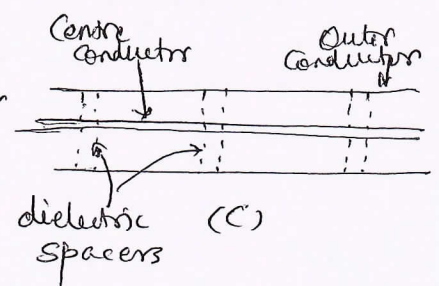 Centre
conductor
Outer
Conductor
dielectric
spacers
(C)